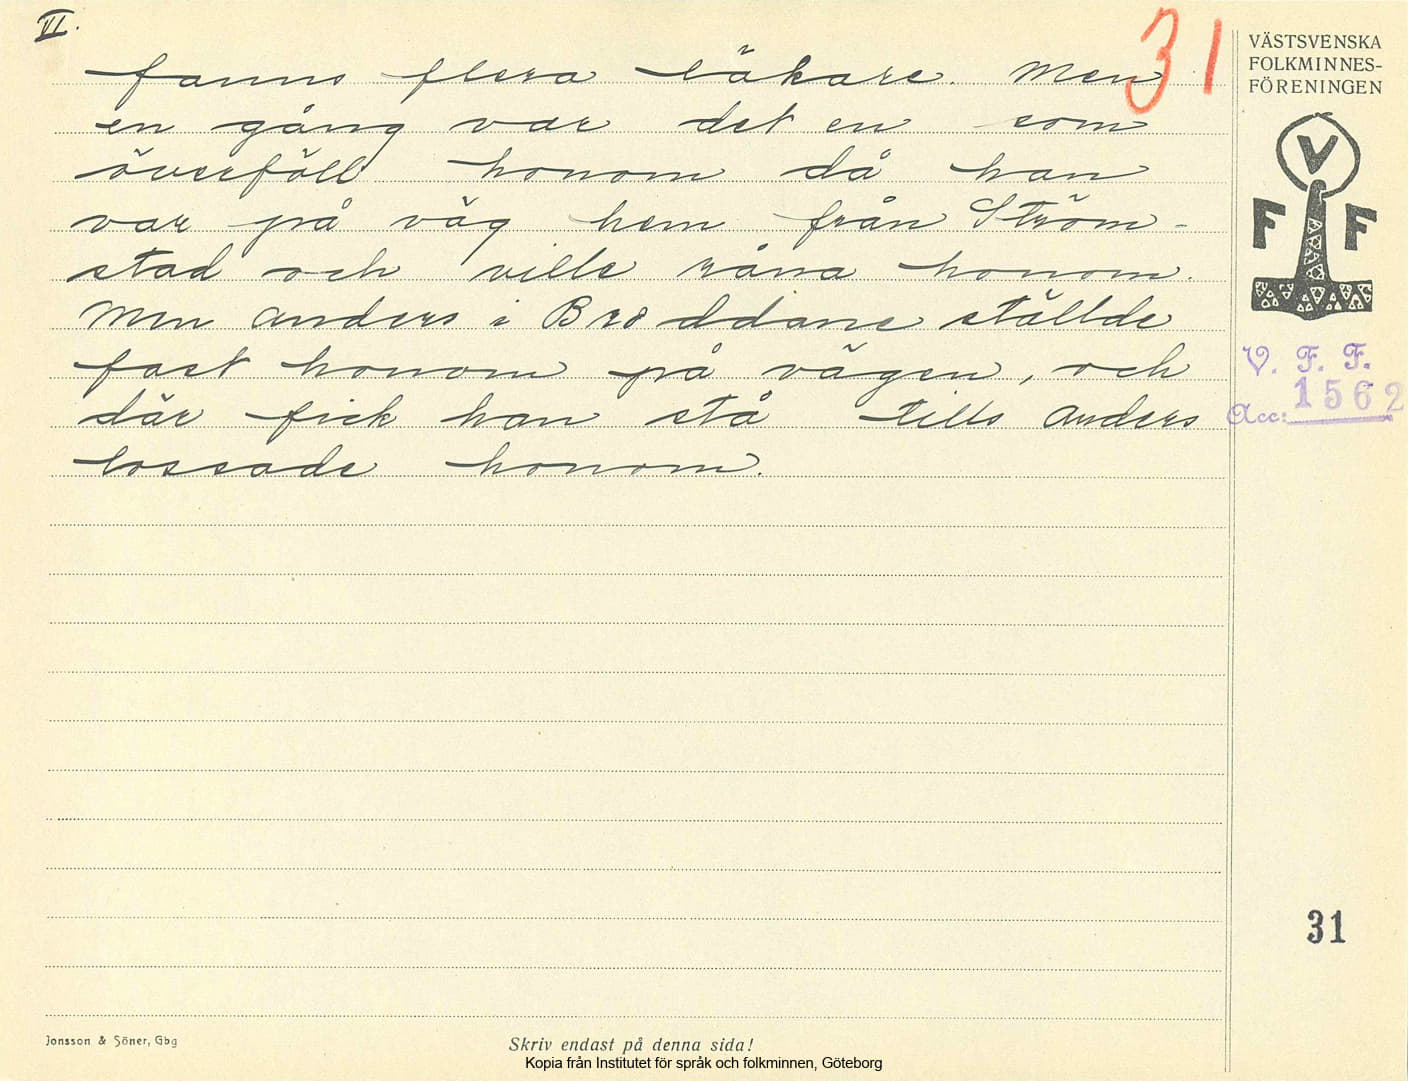 VI.
31
fanns flera läkare. Men
en gång var det en som
överföll honom då han
var på väg hem från Ström-
stad och ville råna honom.
Men Anders i Bräddane ställde
fast honom på vägen, och
där fick han stå tills Anders
lossade honom.
VÄSTSVENSKA
FOLKMINNES-
FÖRENINGEN
V
F F
V. F. F.
Acc: 1562
31
Jonsson & Söner, Gbg
Skriv endast på denna sida!
Kopia från Institutet för språk och folkminnen, Göteborg